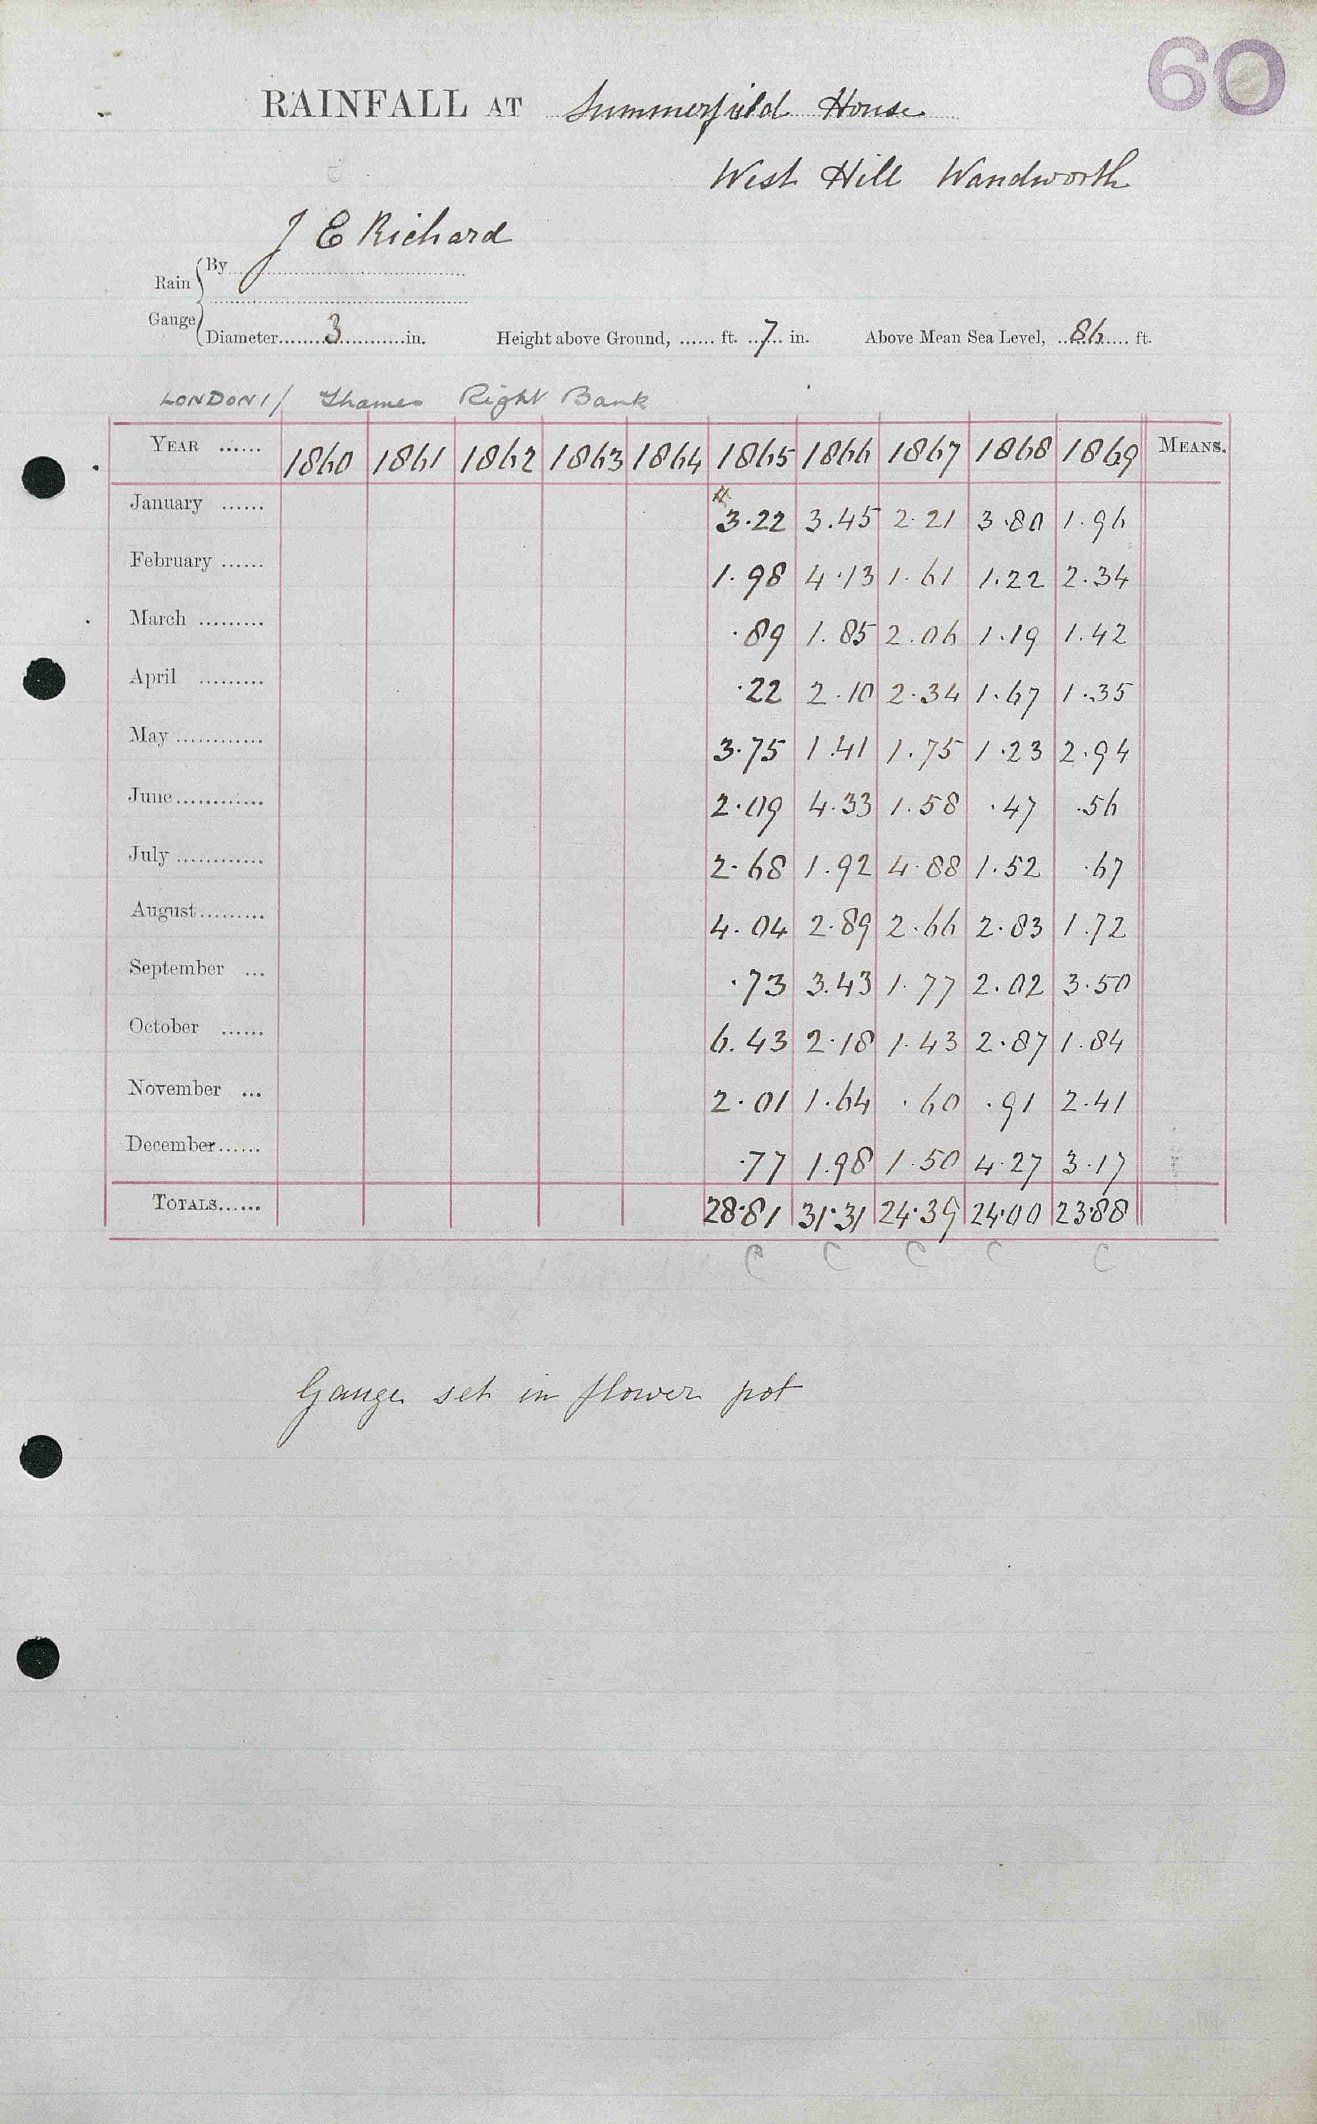 60
RAINFALL AT Summerfield House
West Hill Wandworth
J E Richard
Rain Gauge { By
Diameter 3 in. Height above Ground, ...... ft. 7 in. Above Mean Sea Level, 86 ft.
LONDON1/ Thames Right Bank
YEAR ...... 1860 1861 1862 1863 1864 1865 1866 1867 1868 1869 MEANS.
January ...... 3.22 3.45 2.21 3.80 1.96
February ...... 1.98 4.13 1.61 1.22 2.34
March ......... .89 1.85 2.06 1.19 1.42
April ......... .22 2.10 2.34 1.67 1.35
May ............ 3.75 1.41 1.75 1.23 2.94
June ............ 2.09 4.33 1.58 .47 .56
July ............ 2.68 1.92 4.88 1.52 .67
August ......... 4.04 2.89 2.66 2.83 1.72
September ... .73 3.43 1.77 2.02 3.50
October ...... 6.43 2.18 1.43 2.87 1.84
November ... 2.01 1.64 .60 .91 2.41
December ...... .77 1.98 1.50 4.27 3.17
TOTALS ...... 28.81 31.31 24.39 24.00 23.88
C C C C C
Gauge set in flower pot